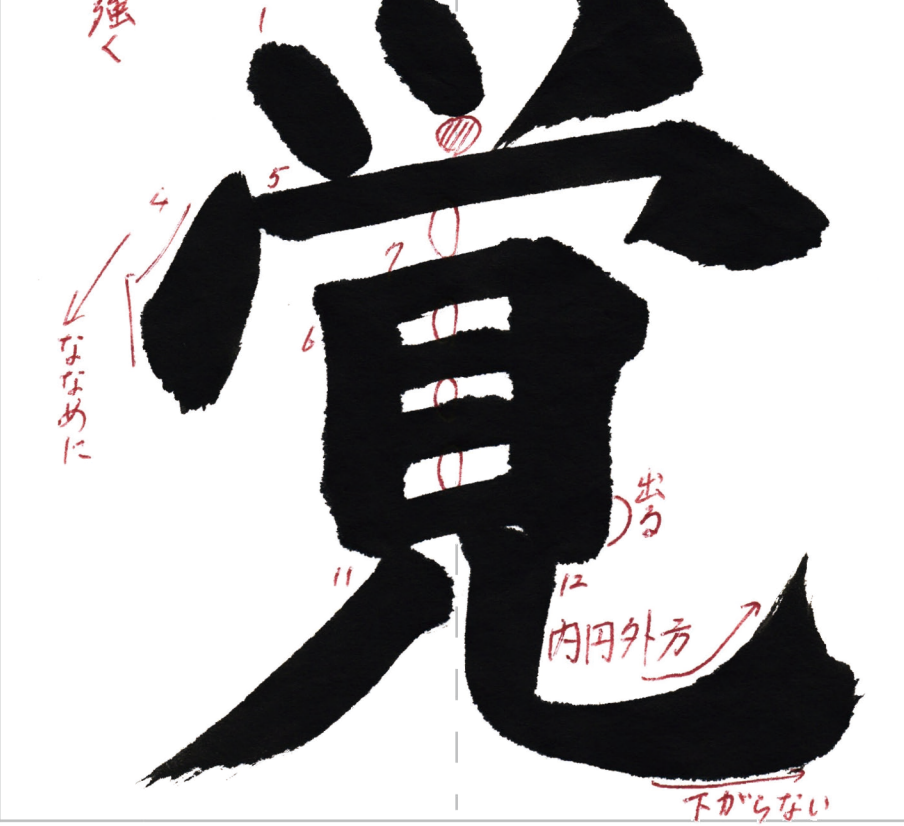 覚
強く
1
4
5
7
6
ななめに
出る
11
12
内円外方
下がらない